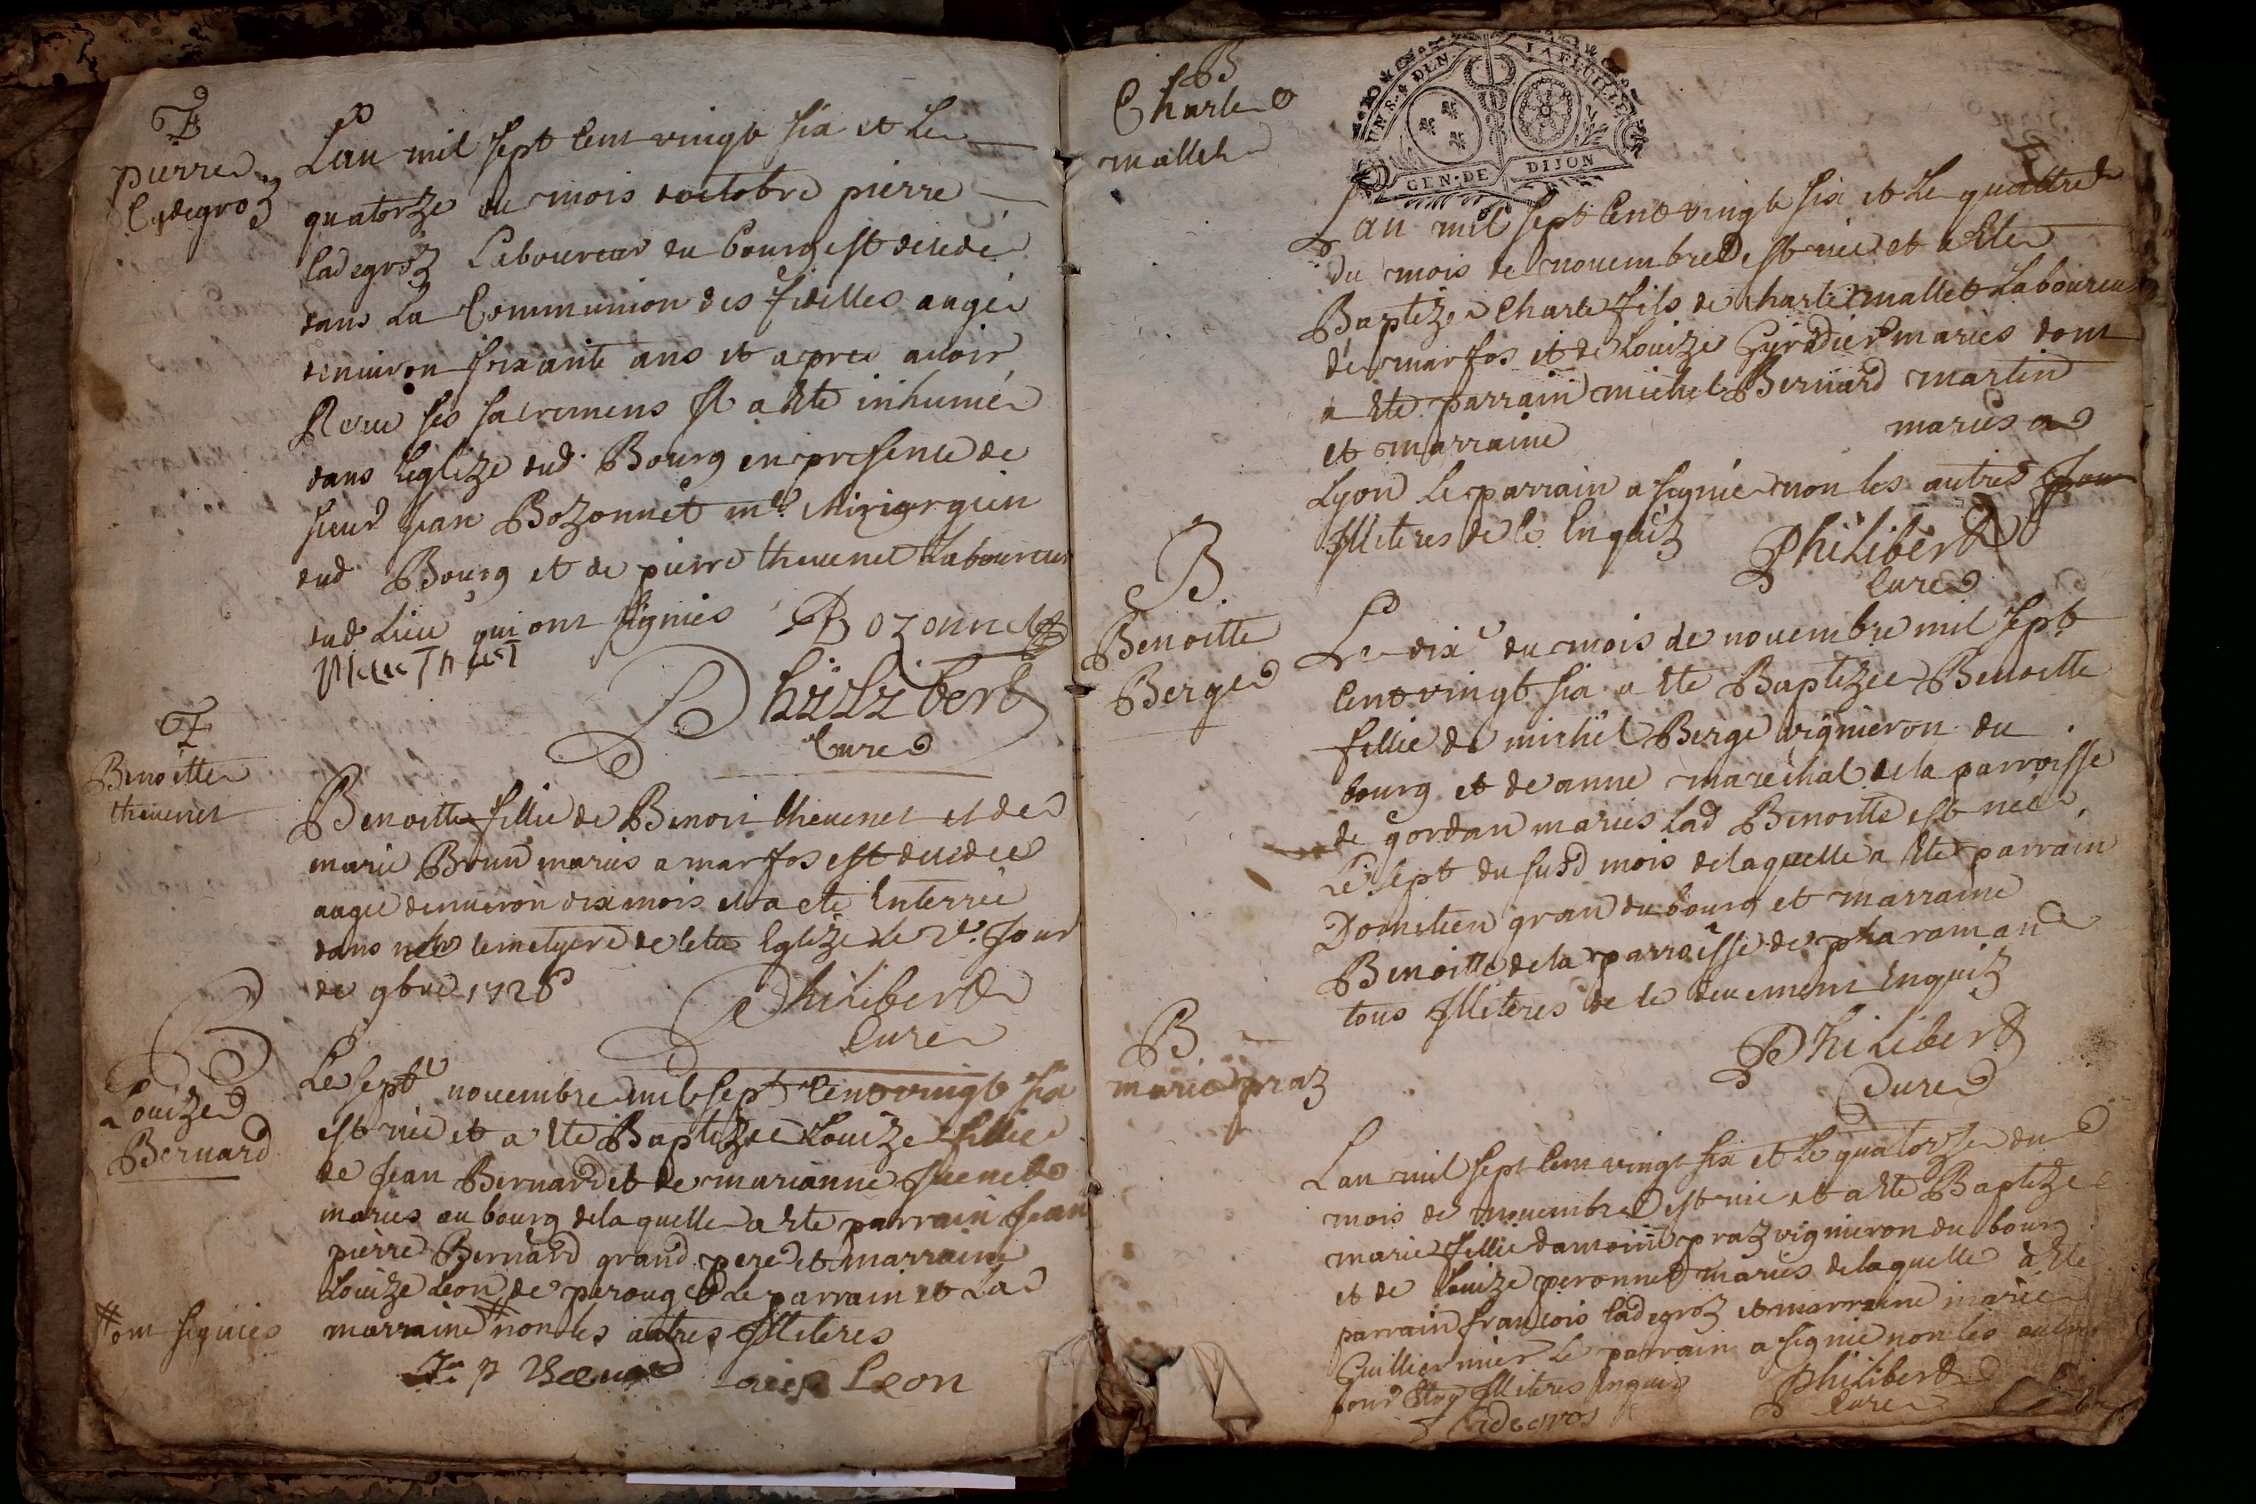 pierre
Cadegroz
Lan mil sept cent vingt six et le
quatorze du mois doctobre pierre
Cadegroz Laboureur du bourg est decedé
dans La Communion des fidelles augé
denuiron soixante ans et apres auoir
Receu ses sacremens Il a été inhumé
dans Leglize dud. Bourg en presence de
sieur jean Bozonnet me. Chirurgien
dud Bourg et de pierre theuenet Laboureur
dud Lieu qui ont signiés Bozonnet
Philibert
Curé
Benoitte
theuenet
Benoitte fillie de Benoit theuenet et de
marie Brun mariés a marfos est decedée
augee denuiron dix mois et a eté Enterrée
dans le cemetyere de cette Eglize le 2e. Jour
de 9bre 1726
Philibert
Curé
B
Louize
Bernard
Le septe nouembre mil sept cent vingt six
est née et a été Baptizée Louize fillie
de Jean Bernard et de marianne
mariés au bourg de laquelle a été parrain Jean
pierre Bernard grand pere et marraine
Louize Leon de perouge Le parrain et La
marraine # non les autres Illiteres
# ont signiés
Leon
B
Charle
mallet
UN S. 4 DEN LA FEUILLE
GEN. DE DIJON
Lan mil sept cent vingt six et le quattre
du mois de nouembre est née et a été
Baptizé Charle fils de charle mallet Laboureur
de marfos et de Louize Gyrodier mariés dont
a été parrain michel Bernard martin
et marraine mariés a
Lyon Le parrain a signié non les autres
Illiteres de ce Enquiz
Philibert
Curé
B
Benoitte
Berge
Le dixe du mois de nouembre mil sept
cent vingt six a été Baptizée Benoitte
fillie de michel Berge vignieron du
bourg et de anne marechal de la parroisse
de gordan mariés Lad Benoitte est née
Le sept du susd mois de laquelle a été parrain
Domitien gran du bourg et marraine
Benoitte de la parroisse de pharamane
tous Illiteres de ce deuement Enquiz
Philibert
Curé
B
marie praz
Lan mil sept cent vingt six et le quatorze du
mois de nouembre est née et a été Baptizée
marie fillie damoin praz vignieron du bourg
et de Louize peronnet mariés de laquelle a été
parrain francois Cadegroz et marraine marie
Guilliermier Le parrain a signié non les autres
pour etre Illiteres Enquis
Philibert
Curé
Cadegros